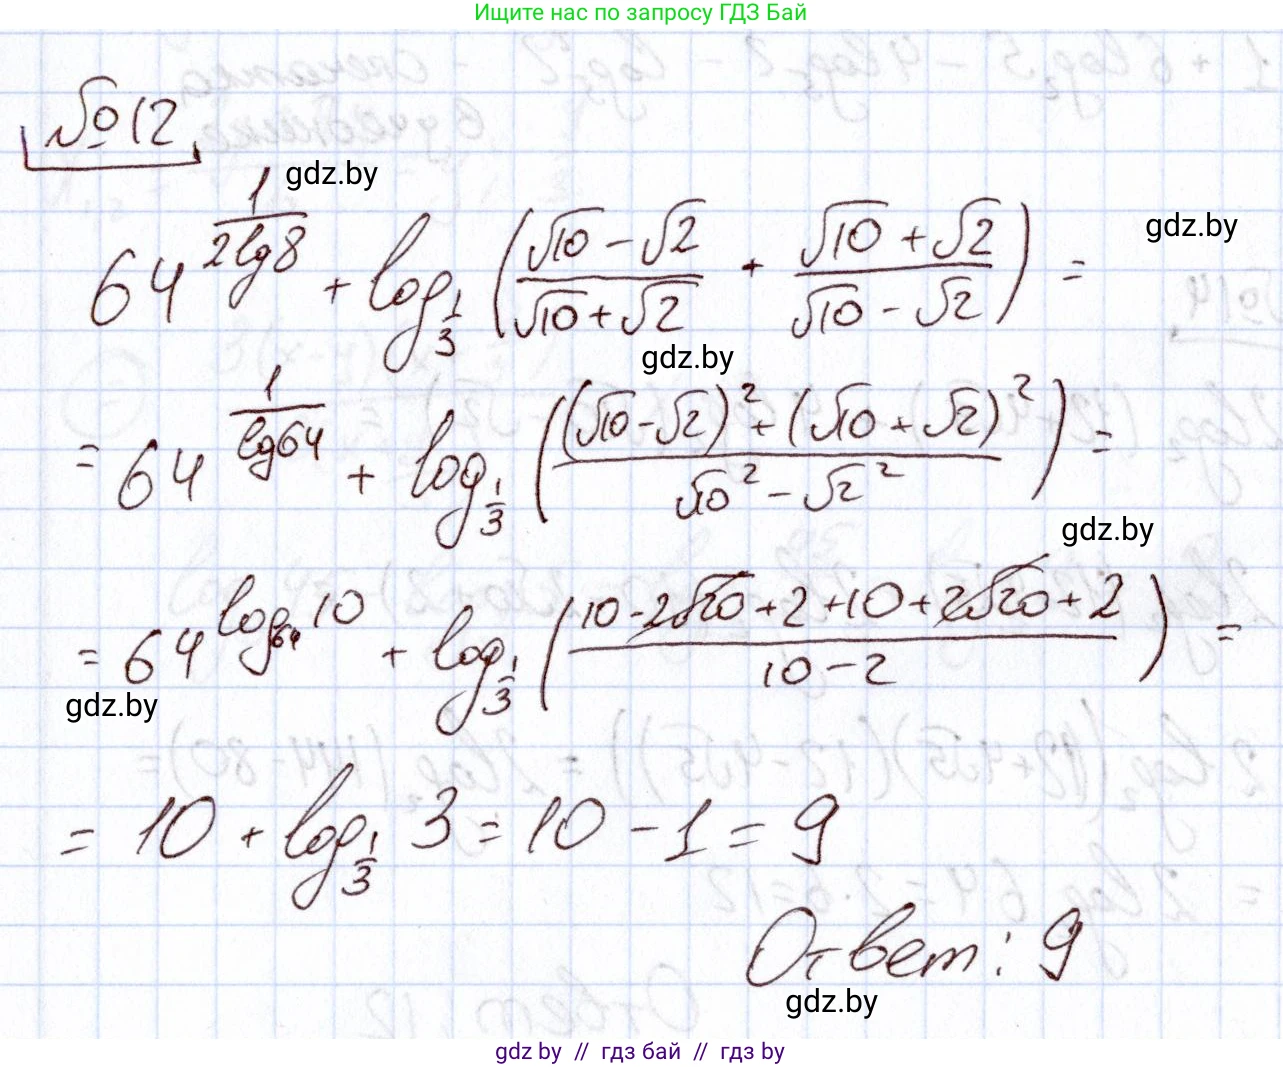 Ищите нас по запросу ГДЗ Бай
№12
gdz.by
64^(1/(2lg8)) + log_(1/3) ((√10 − √2)/(√10 + √2) + (√10 + √2)/(√10 − √2)) =
gdz.by
gdz.by
= 64^(1/lg64) + log_(1/3) (((√10 − √2)² + (√10 + √2)²)/(√10² − √2²)) =
gdz.by
= 64^(log_64 10) + log_(1/3) ((10 − 2√20 + 2 + 10 + 2√20 + 2)/(10 − 2)) =
gdz.by
= 10 + log_(1/3) 3 = 10 − 1 = 9
Ответ: 9
gdz.by
gdz by // гдз бай // гдз by